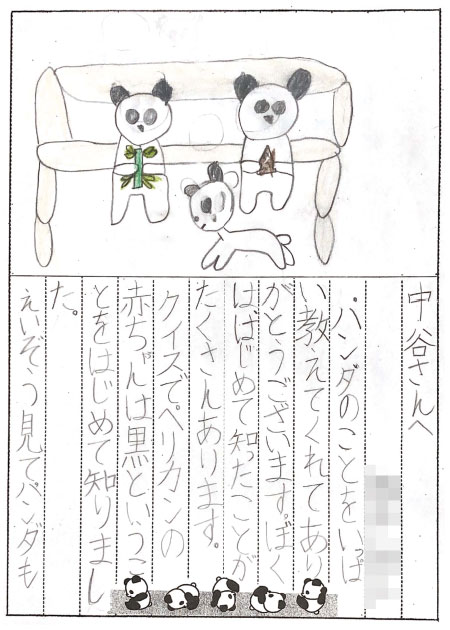 中谷さんへ
パンダのことをいっぱ
い教えてくれてあり
がとうございます。ぼく
は、はじめて知ったことが
たくさんあります。
クイズでペリカンの
赤ちゃんは黒というこ
とをはじめて知りまし
た。
えいぞう見てパンダも